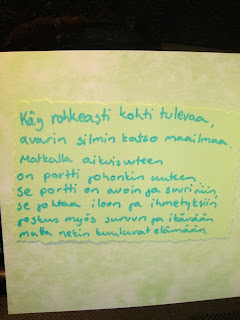 Käy rohkeasti kohti tulevaa,
avarin silmin katso maailmaa.
Matkalla aikuisuuteen
on portti johonkin uuteen.
Se portti on avoin ja suuri niin,
se johtaa iloon ja ihmetyksiin
joskus myös suruun ja ikävään
mutta nekin kuuluvat elämään.